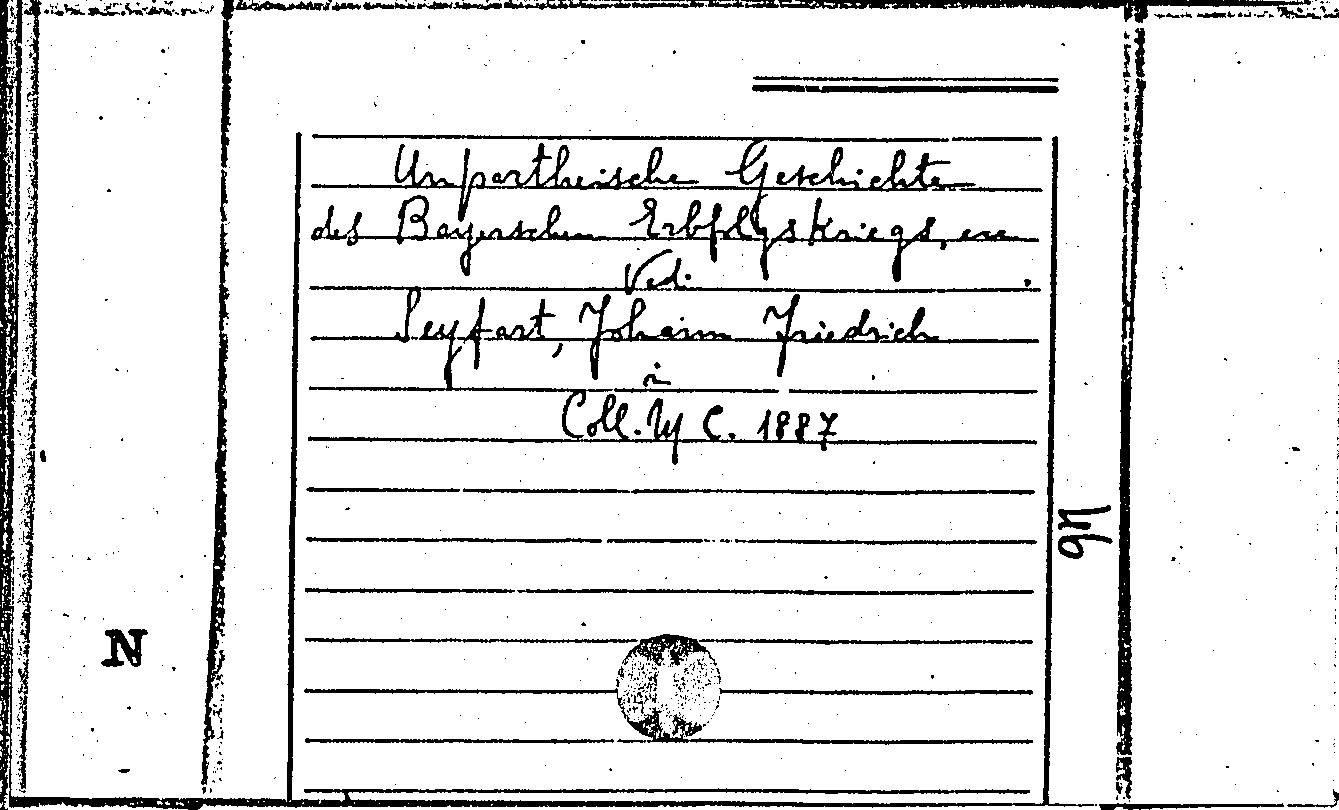 Unpartheische Geschichte
des Bayerschen Erbfolgskriegs,
Vedi
Seyfart, Johann Friedrich
in
Coll. C. 1887
N